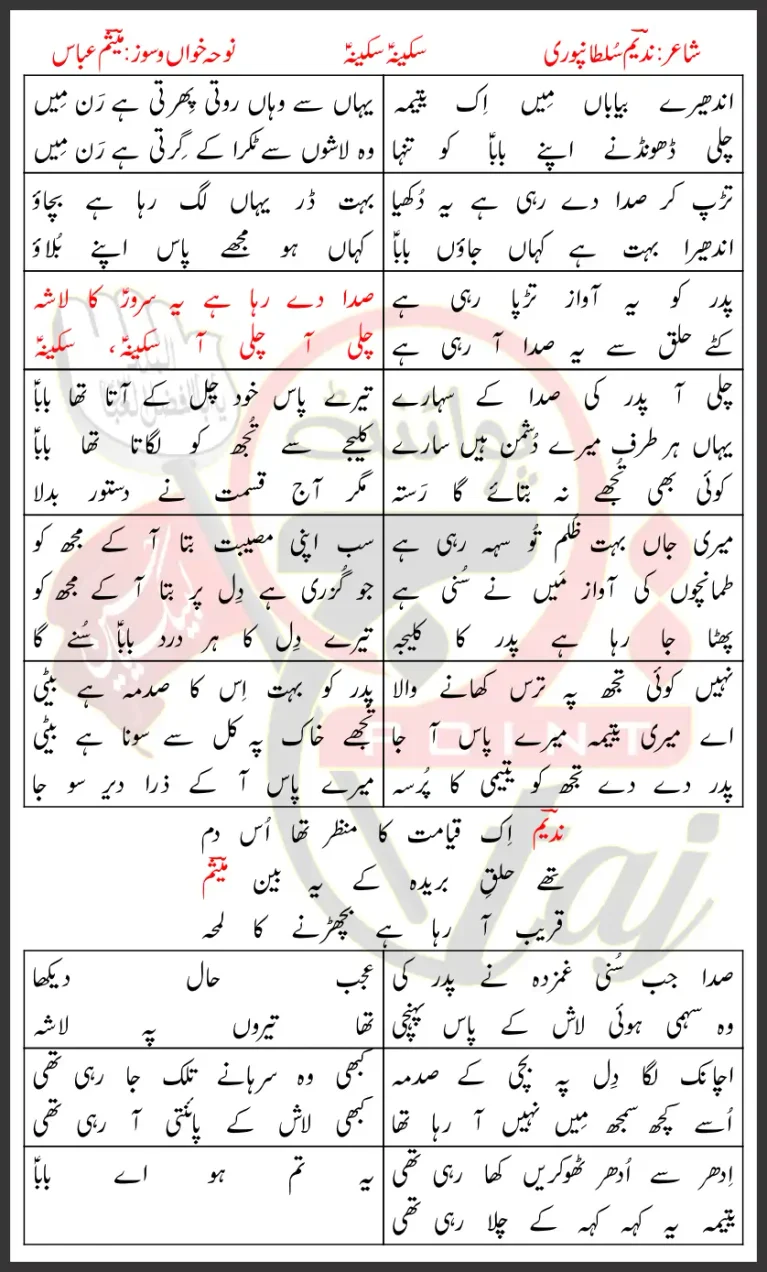 شاعر: ندیمؔ سُلطانپوری
سکینہؑ سکینہؑ
نوحہ خواں و سوز: میثمؔ عباس
اندھیرے بیاباں مِیں اِک یتیمہ
چلی ڈھونڈنے اپنے باباؑ کو تنہا
یہاں سے وہاں روتی پِھرتی ہے رَن مِیں
وہ لاشوں سے ٹکرا کے گِرتی ہے رَن مِیں
تڑپ کر صدا دے رہی ہے یہ دُکھیا
اندھیرا بہت ہے کہاں جاؤں باباؑ
بہت ڈر یہاں لگ رہا ہے بچاؤ
کہاں ہو مجھے پاس اپنے بُلاؤ
پدر کو یہ آواز تڑپا رہی ہے
کٹے حلق سے یہ صدا آ رہی ہے
صدا دے رہا ہے یہ سرورؑ کا لاشہ
چلی آ چلی آ سکینہؑ، سکینہؑ
چلی آ پدر کی صدا کے سہارے
یہاں ہر طرف میرے دُشمن ہیں سارے
کوئی بھی تجھے نہ بتائے گا رَستہ
تیرے پاس خود چل کے آتا تھا باباؑ
کلیجے سے تُجھ کو لگاتا تھا باباؑ
مگر آج قسمت نے دستور بدلا
میری جاں بہت ظُلم تُو سہہ رہی ہے
طمانچوں کی آواز مَیں نے سُنی ہے
پھٹا جا رہا ہے پدر کا کلیجہ
سب اپنی مصیبت بتا آ کے مجھ کو
جو گُزری ہے دِل پر بتا آ کے مجھ کو
تیرے دِل کا ہر درد باباؑ سُنے گا
نہیں کوئی تجھ پہ ترس کھانے والا
اے میری یتیمہ میرے پاس آ جا
پدر دے دے تجھ کو یتیمی کا پُرسہ
پدر کو بہت اِس کا صدمہ ہے بیٹی
تجھے خاک پہ کل سے سونا ہے بیٹی
میرے پاس آ کے ذرا دیر سو جا
ندیمؔ اِک قیامت کا منظر تھا اُس دم
تھے حلقِ بریدہ کے یہ بین میثمؔ
قریب آ رہا ہے بچھڑنے کا لمحہ
صدا جب سُنی غمزدہ نے پدر کی
وہ سہمی ہوئی لاش کے پاس پہنچی
عجب حال دیکھا
تھا تیروں پہ لاشہ
اچانک لگا دِل پہ بچی کے صدمہ
اُسے کچھ سمجھ مِیں نہیں آ رہا تھا
کبھی وہ سرہانے تلک جا رہی تھی
کبھی لاش کے پائنتی آ رہی تھی
اِدھر سے اُدھر ٹھوکریں کھا رہی تھی
یتیمہ یہ کہہ کہہ کے چلا رہی تھی
یہ تم ہو اے باباؑ
پوائنٹ
POINT
Taj